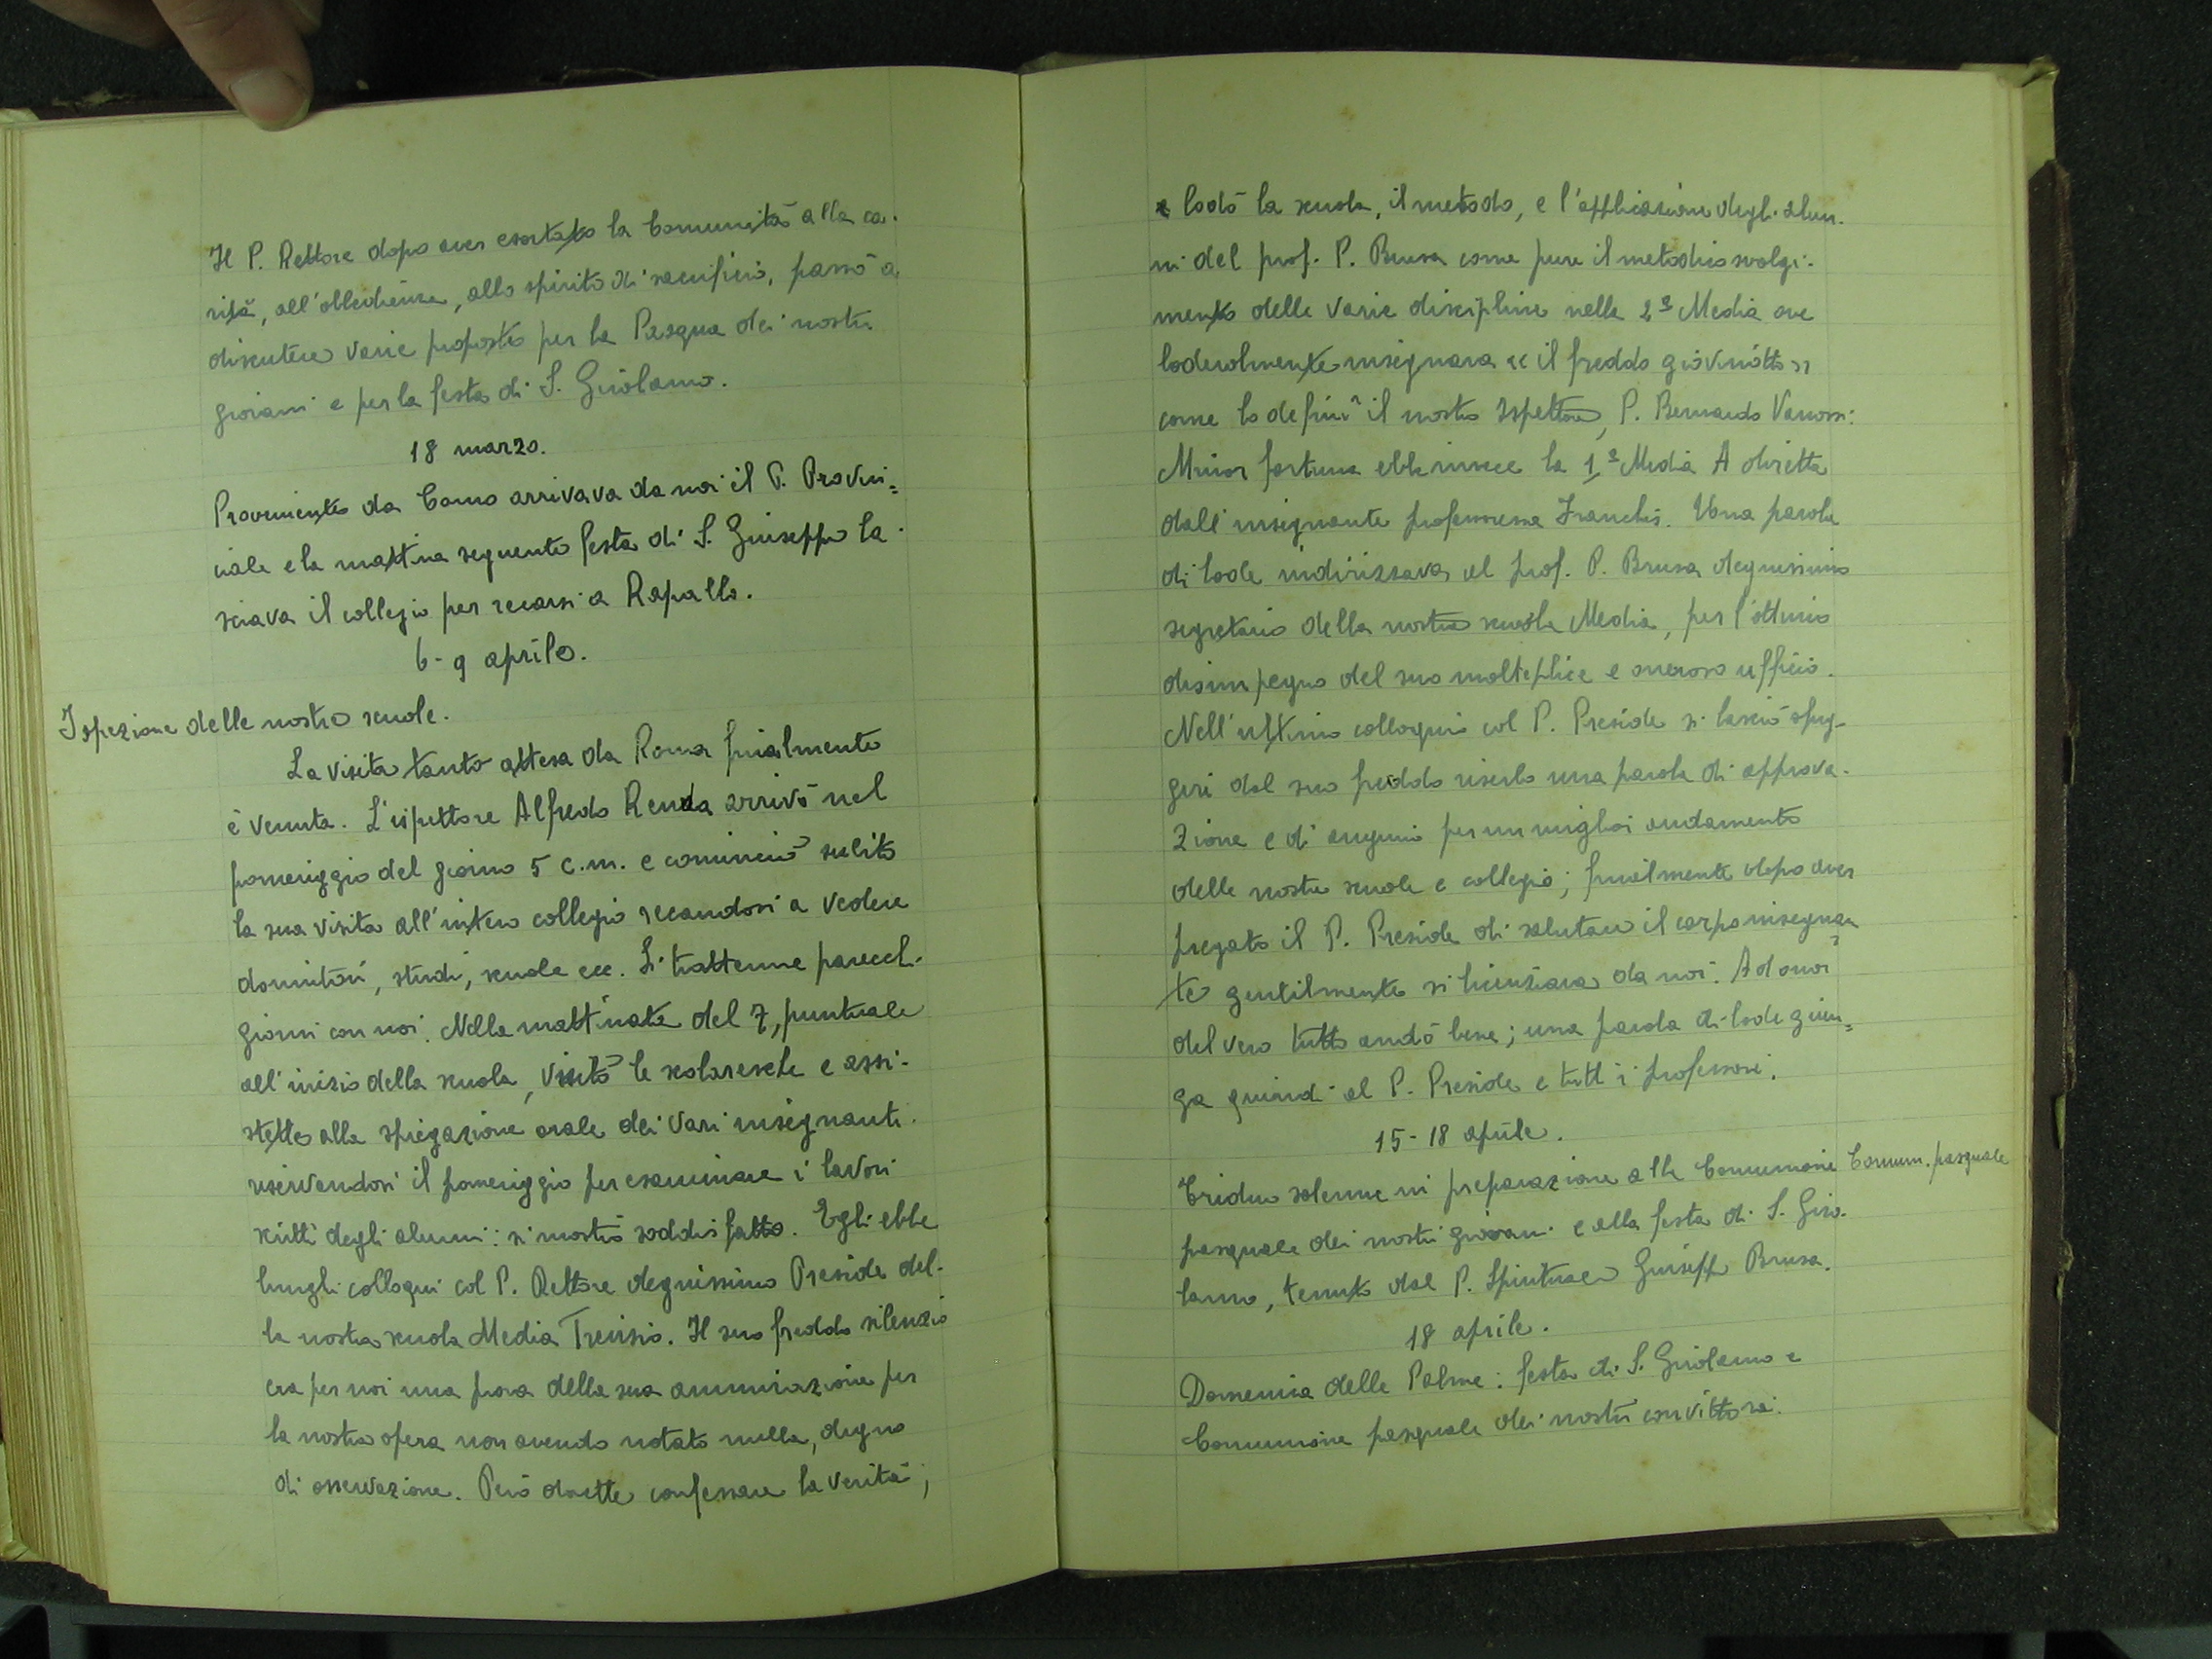 Il P. Rettore dopo aver esortato la Comunità alla ca-
rità, all'obbedienza, allo spirito di sacrificio, passò a
discutere varie proposte per la Pasqua dei nostri
giovani e per la festa di S. Girolamo.
18 marzo.
Proveniente da Como arrivava da noi il P. Provin=
ciale e la mattina seguente festa di S. Giuseppe la-
sciava il collegio per recarsi a Rapallo.
6-9 aprile.
Ispezione delle nostre scuole.
La visita tanto attesa da Roma finalmente
è venuta. L'ispettore Alfredo Renda arrivò nel
pomeriggio del giorno 5 c.m. e cominciò subito
la sua visita all'intero collegio recandosi a vedere
dormitori, studi, scuole ecc. Si trattenne parecch.
giorni con noi. Nella mattinata del 7, puntuale
all'inizio della scuola, visitò le scolaresche e assi-
stette alla spiegazione orale dei vari insegnanti
riservandosi il pomeriggio per esaminare i lavori
scritti degli alunni: si mostrò soddisfatto. Egli ebbe
lunghi colloqui col P. Rettore degnissimo Preside del-
la nostra scuola Media Trevisio. Il suo freddo silenzio
era per noi una prova della sua ammirazione per
la nostra opera non avendo notato nulla, degno
di osservazione. Però dovette confessare la verità;
e lodò la scuola, il metodo, e l'applicazione degli alun-
ni del prof. P. Brusa come pure il metodico svolgi-
mento delle varie discipline nella 2ª Media ove
lodevolmente insegnava "il freddo giovinotto"
come lo definì il nostro Ispettore, P. Bernardo Vanossi:
Minor fortuna ebbe invece la 1ª Media A diretta
dall'insegnante professoressa Franchis. Una parola
di lode indirizzava al prof. P. Brusa degnissimo
segretario della nostra scuola Media, per l'ottimo
disimpegno del suo molteplice e oneroso ufficio.
Nell'ultimo colloquio col P. Preside si lasciò sfug-
giri dal suo freddo riserbo una parola di approva-
zione e di augurio per un miglior andamento
delle nostre scuole e collegio; finalmente dopo aver
pregato il P. Preside di salutare il corpo insegnan=
te gentilmente si licenziava da noi. Ad onor
del vero tutto andò bene; una parola di lode giun=
ga quindi al P. Preside e tutti i professori.
15-18 aprile.
Triduo solenne in preparazione alla Comunione
Comun. pasquale
pasquale dei nostri giovani e alla festa di S. Giro-
lamo, tenuto dal P. Spirituale Giuseppe Brusa.
18 aprile.
Domenica delle Palme: festa di S. Girolamo e
Comunione pasquale dei nostri convittori.